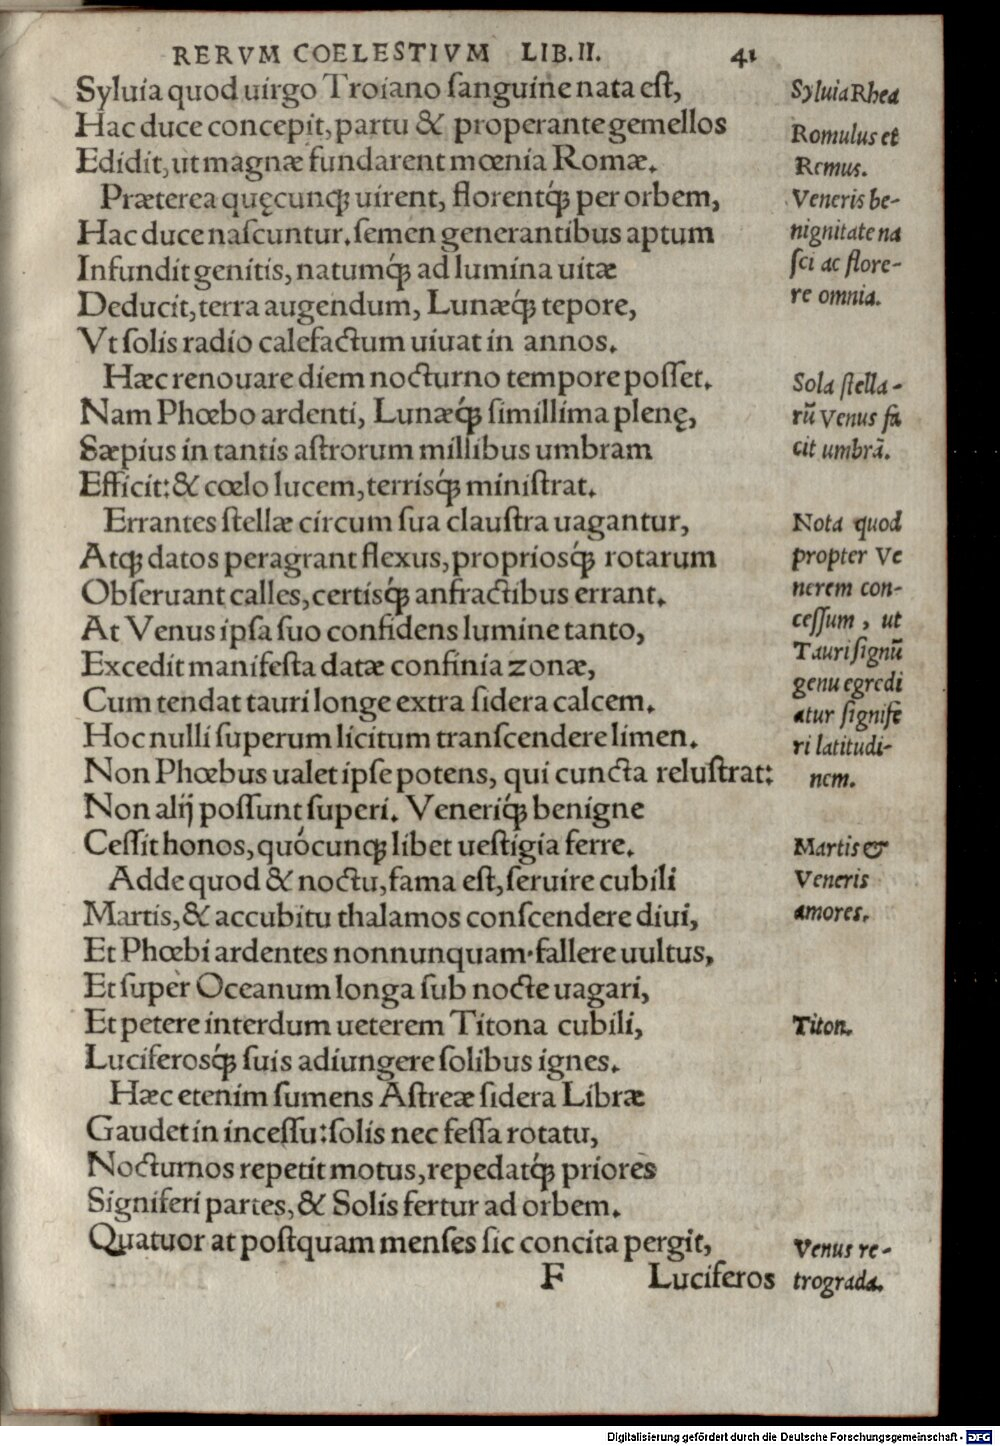 RERVM COELESTIVM LIB.II. 41
Syluia quod uirgo Troiano ſanguine nata eſt,
Hac duce concepit, partu & properante gemellos
Edidit, ut magnæ fundarent mœnia Romæ.
Præterea quęcunq; uirent, florentq́; per orbem,
Hac duce naſcuntur. ſemen generantibus aptum
Infundit genitis, natumq́; ad lumina uitæ
Deducit, terra augendum, Lunæq́; tepore,
Vt ſolis radio calefactum uiuat in annos.
Hæc renouare diem nocturno tempore poſſet.
Nam Phœbo ardenti, Lunæq́; simillima plenę,
Sæpius in tantis aſtrorum millibus umbram
Efficit: & cœlo lucem, terrisq́; miniſtrat.
Errantes ſtellæ circum ſua clauſtra uagantur,
Atq; datos peragrant flexus, propriosq́; rotarum
Obſeruant calles, certisq́; anfractibus errant.
At Venus ipſa ſuo confidens lumine tanto,
Excedit manifeſta datæ confinia zonæ,
Cum tendat tauri longe extra ſidera calcem.
Hoc nulli ſuperum licitum tranſcendere limen.
Non Phœbus ualet ipſe potens, qui cuncta reluſtrat:
Non alij poſſunt ſuperi. Veneriq́; benigne
Ceſſit honos, quócunq; libet ueſtigia ferre.
Adde quod & noctu, fama eſt, ſeruire cubili
Martis, & accubitu thalamos conſcendere diui,
Et Phœbi ardentes nonnunquam·fallere uultus,
Et ſuper Oceanum longa ſub nocte uagari,
Et petere interdum ueterem Titona cubili,
Luciferosq́; ſuis adiungere ſolibus ignes.
Hæc etenim ſumens Aſtreæ ſidera Libræ
Gaudet in inceſſu: ſolis nec feſſa rotatu,
Nocturnos repetit motus, repedatq́; priores
Signiferi partes, & Solis fertur ad orbem.
Quatuor at poſtquam menſes ſic concita pergit,
F Luciferos
Syluia Rhea
Romulus et
Remus.
Veneris be-
nignitate na
ſci ac flore-
re omnia.
Sola ſtella-
rū Venus fa
cit umbrā.
Nota quod
propter Ve
nerem con-
ceſſum, ut
Tauri ſignū
genu egredi
atur ſignife
ri latitudi-
nem.
Martis &
Veneris
amores.
Titon.
Venus re-
trograda.
Digitalisierung gefördert durch die Deutsche Forschungsgemeinschaft - DFG